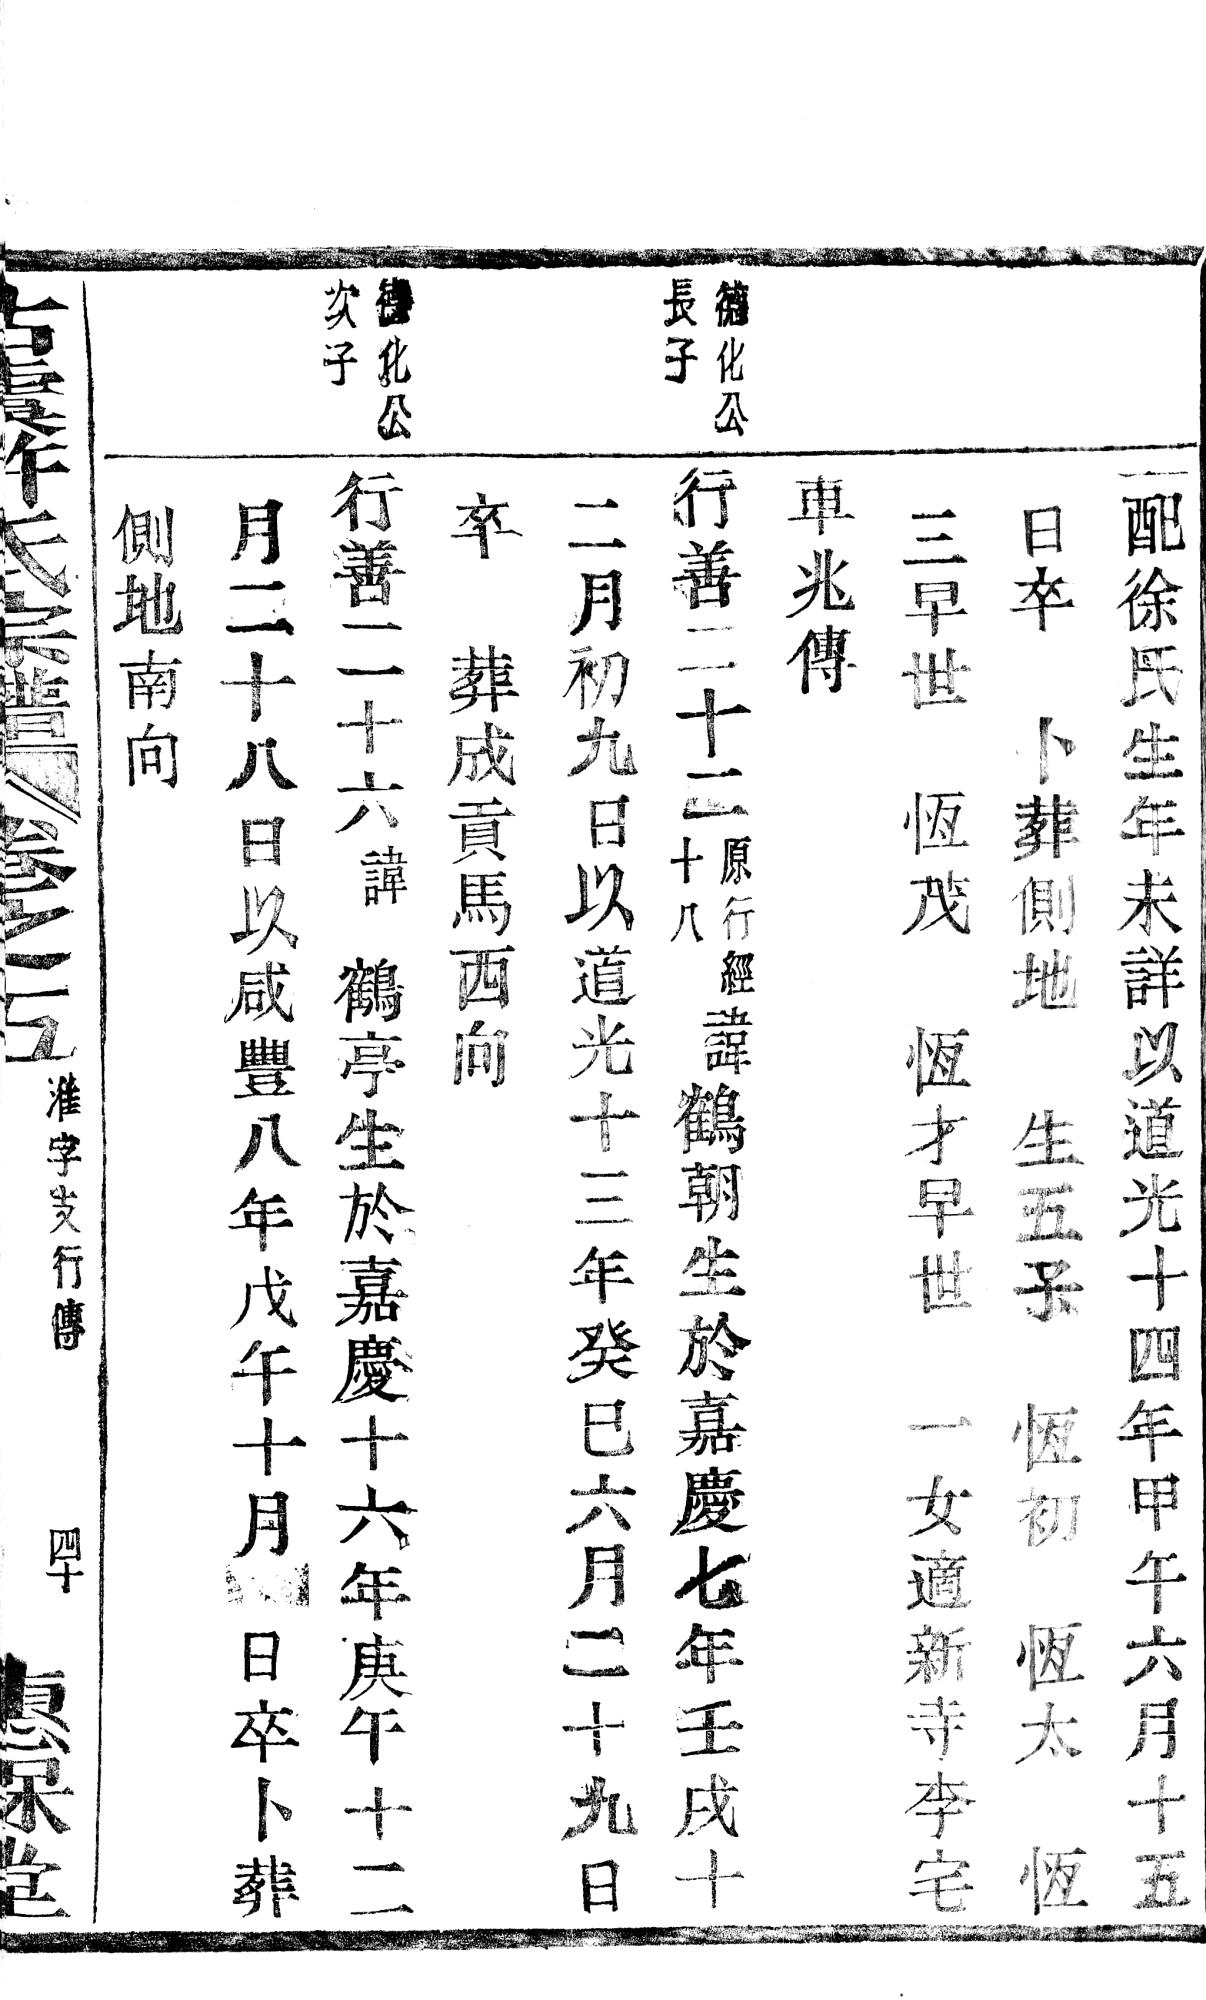 配徐氏生年未詳以道光十四年甲午六月十五
日卒　卜葬側地　生五子　恆初　恆太　恆
三早世　恆茂　恆才早世　一女適新寺李宅
車兆傳
德化公
長子
行善二十二
原行經
十八
諱鶴朝生於嘉慶七年壬戌十
二月初九日以道光十三年癸巳六月二十九日
卒　葬成貢馬西向
德化公
次子
行善二十六諱　鶴亭生於嘉慶十六年庚午十二
月二十八日以咸豐八年戊午十月　日卒卜葬
側地南向
氏宗譜卷之五
淮字支行傳
四十
惠保堂